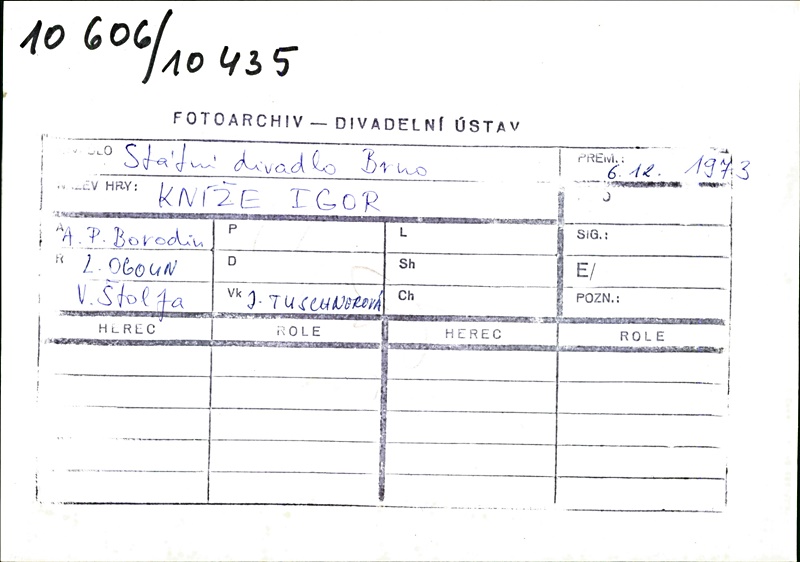 10 606/10 435
FOTOARCHIV — DIVADELNÍ ÚSTAV
Státní divadlo Brno
PREM.: 6. 12. 1973
HRY: KNÍŽE IGOR
A A. P. Borodin
P
L
SIG.:
R L. OGOUN
D
Sh
E/
V. Štolfa
Vk J. TUSCHNEROVÁ
Ch
POZN.:
HEREC ROLE HEREC ROLE